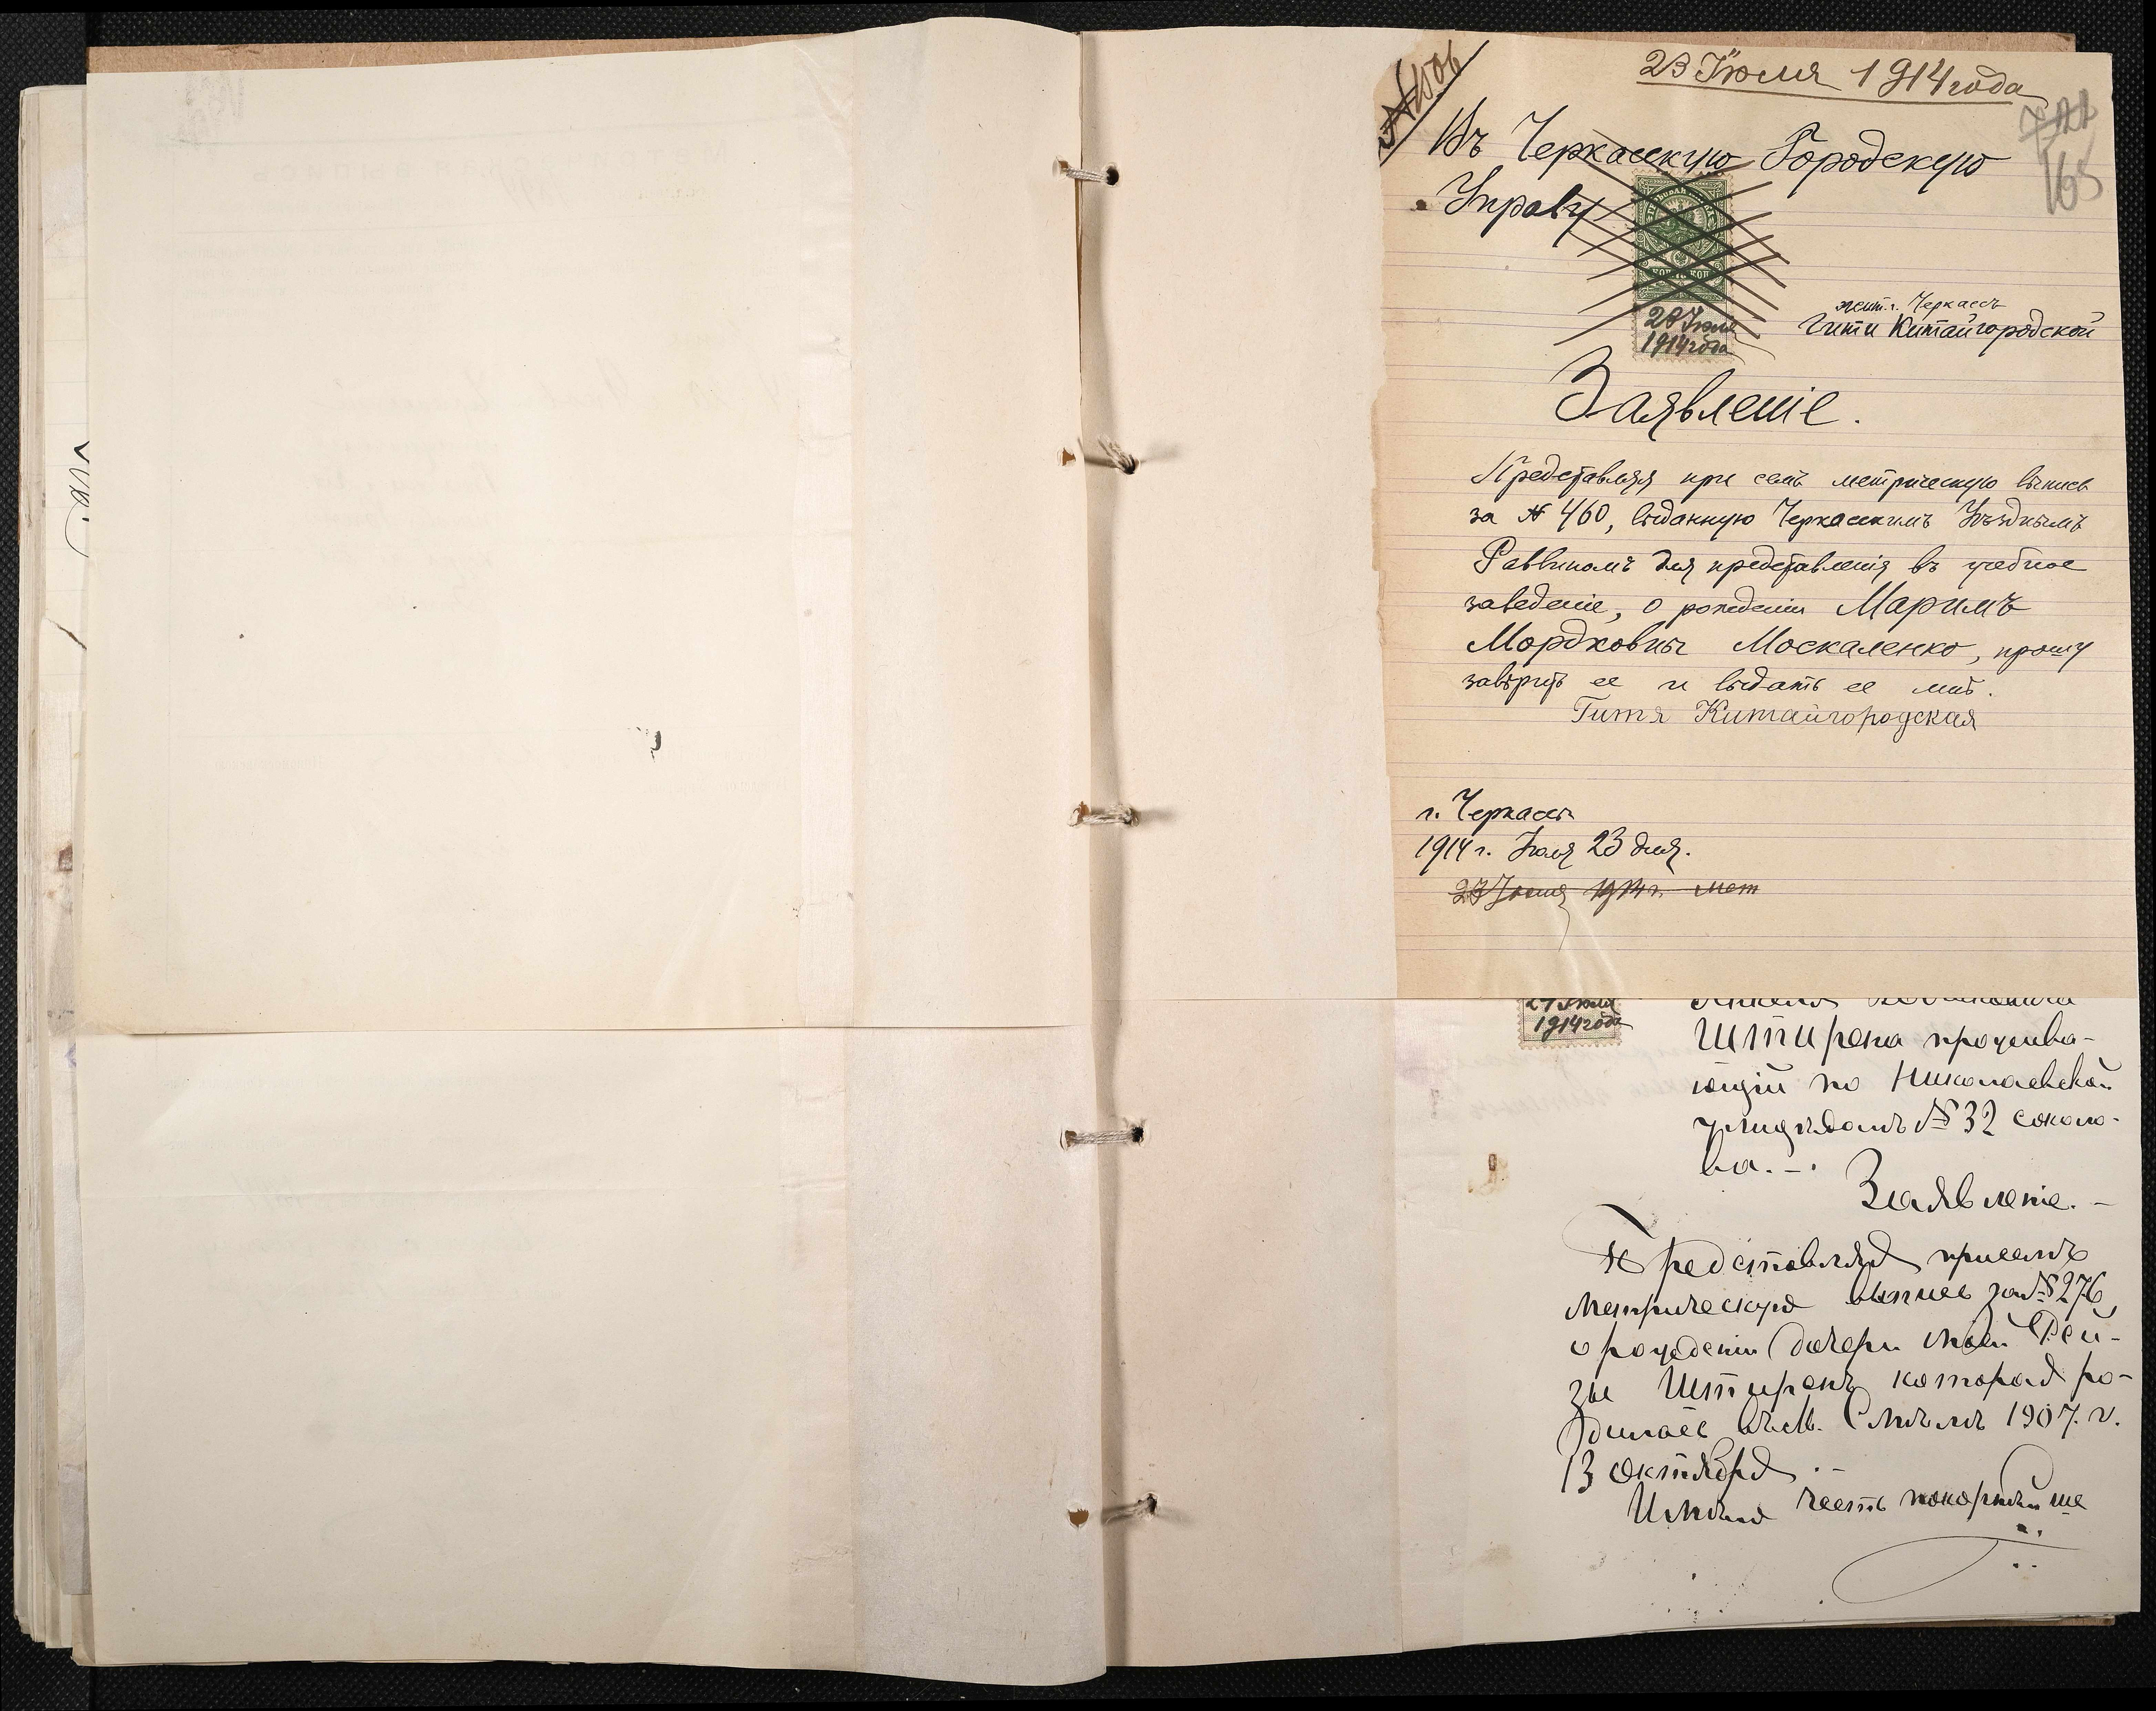 № 1506
23 Іюля 1914 года
722
165
Въ Черкасскую Городскую
Управу
жит. г. Черкассъ
Гити Китайгородской
23 Іюля
1914 года
Заявленіе.
Представляя при семъ метрическую выпись
за № 460, выданную Черкасскимъ Уѣзднымъ
Раввиномъ для представленія въ учебное
заведеніе, о рожденіи Маримъ
Мордковны Москаленко, прошу
завѣрить ее и выдать ее мнѣ.
Гитя Китайгородская
г. Черкассы
1914 г. Іюля 23 дня.
23 Іюля 1914 г. мет
24 Іюля
1914 года
Штирена прожива-
ющій по Николаевской
улицѣ домъ № 32 Соколо-
ва. -
Заявленіе. -
Представляя присемъ
метрическую выпись за № 276,
о рожденіи дочери моей Рей-
зы Штиренъ которая ро-
дилась въ м. Смѣлѣ 1907. г.
13 октября. -
Имѣю честь покорнѣйше